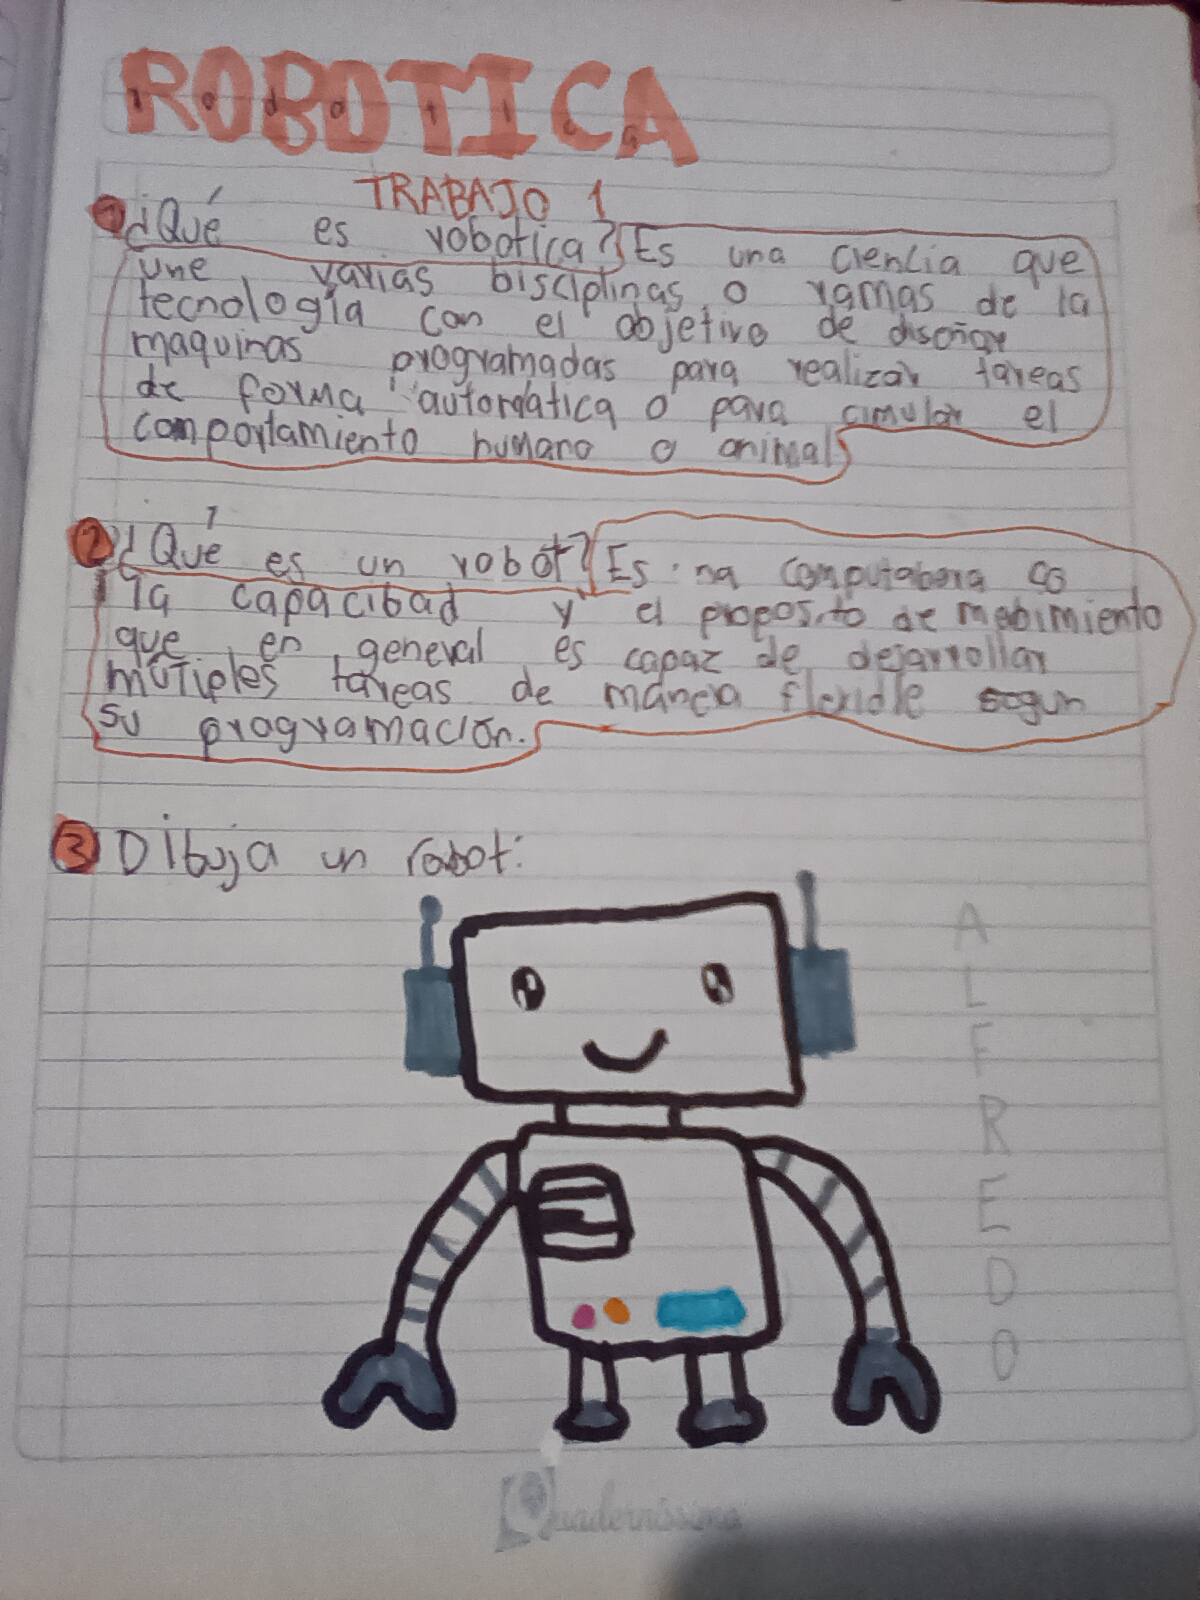 ROBOTICA
TRABAJO 1
1 ¿Qué es robotica? Es una ciencia que
une varias bisciplinas o ramas de la
tecnología con el objetivo de diseñar
maquinas programadas para realizar tareas
de forma automática o para cimular el
comportamiento humano o animal
2 ¿Qué es un robot? Es na computabora co
la capacibad y el proposito de mobimiento
que en general es capaz de desarrollar
múltiples tareas de manera flexidle segun
su programación.
3 Dibuja un robot:
A
L
F
R
E
D
O
Quadernissimo